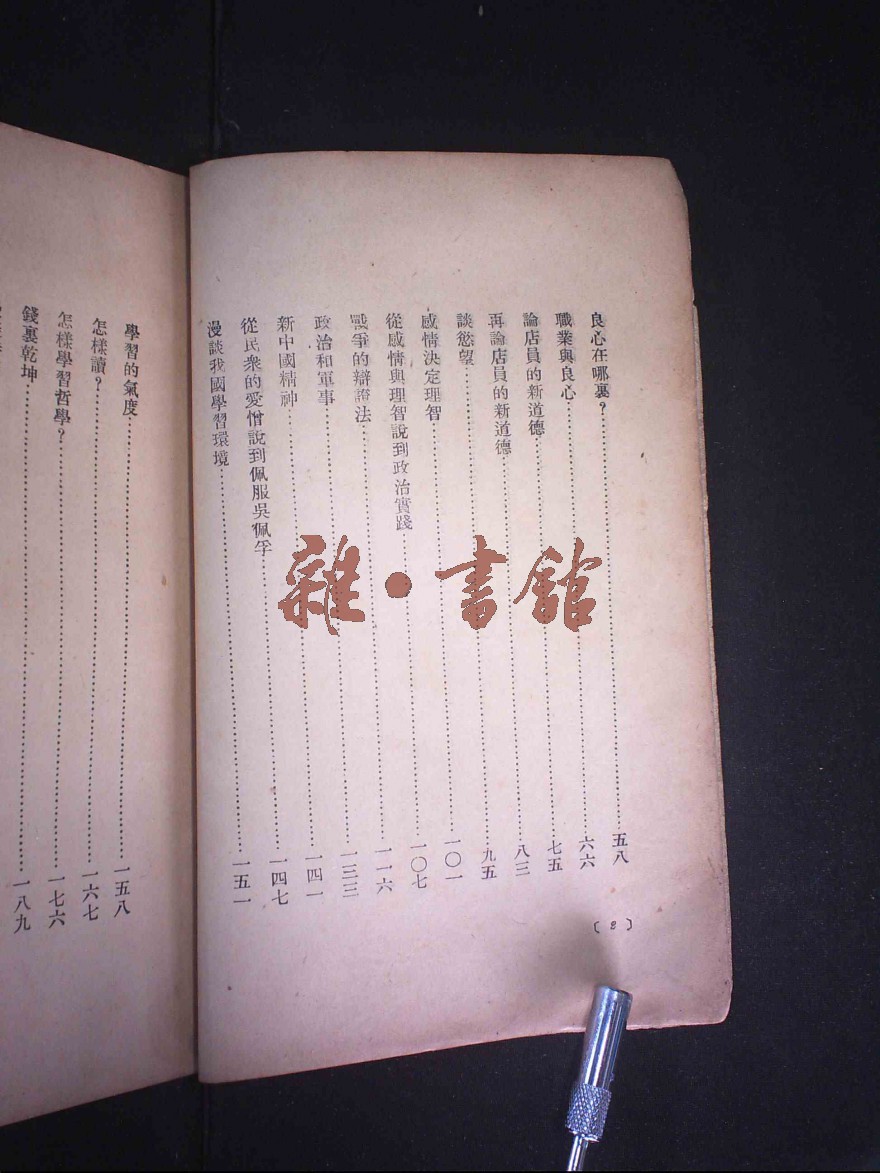 良心在哪裏？……五八
職業與良心……六六
論店員的新道德……七五
再論店員的新道德……八三
談慾望……九五
感情決定理智……一〇一
從感情與理智說到政治實踐……一〇七
戰爭的辯證法……一一六
政治和軍事……一三三
新中國精神……一四一
從民衆的愛憎說到佩服吳佩孚……一四七
漫談我國學習環境……一五一
〔2〕
學習的氣度……一五八
怎樣讀？……一六七
怎樣學習哲學？……一七六
錢裏乾坤……一八九
雜·書館